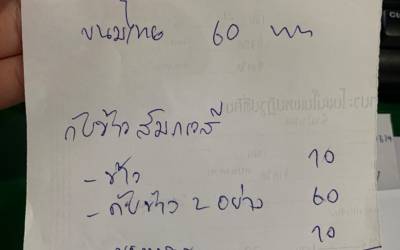 ขนมไทย 60 บาท
กับข้าวสัมภเวสี
- ข้าว 10
- กับข้าว 2 อย่าง 60
10